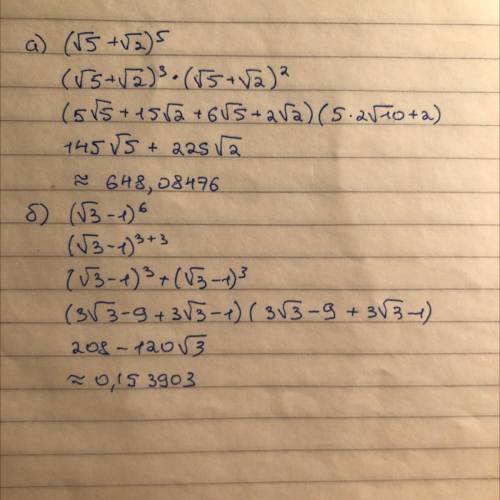 а) (√5 +√2)⁵
(√5+√2)³ • (√5+√2)²
(5√5 + 15√2 + 6√5 + 2√2) (5 · 2√10 + 2)
145√5 + 225√2
≈ 648,08476
б) (√3 - 1)⁶
(√3 - 1)³⁺³
(√3 - 1)³ + (√3 - 1)³
(3√3 - 9 + 3√3 - 1) (3√3 - 9 + 3√3 - 1)
208 - 120√3
≈ 0,153903